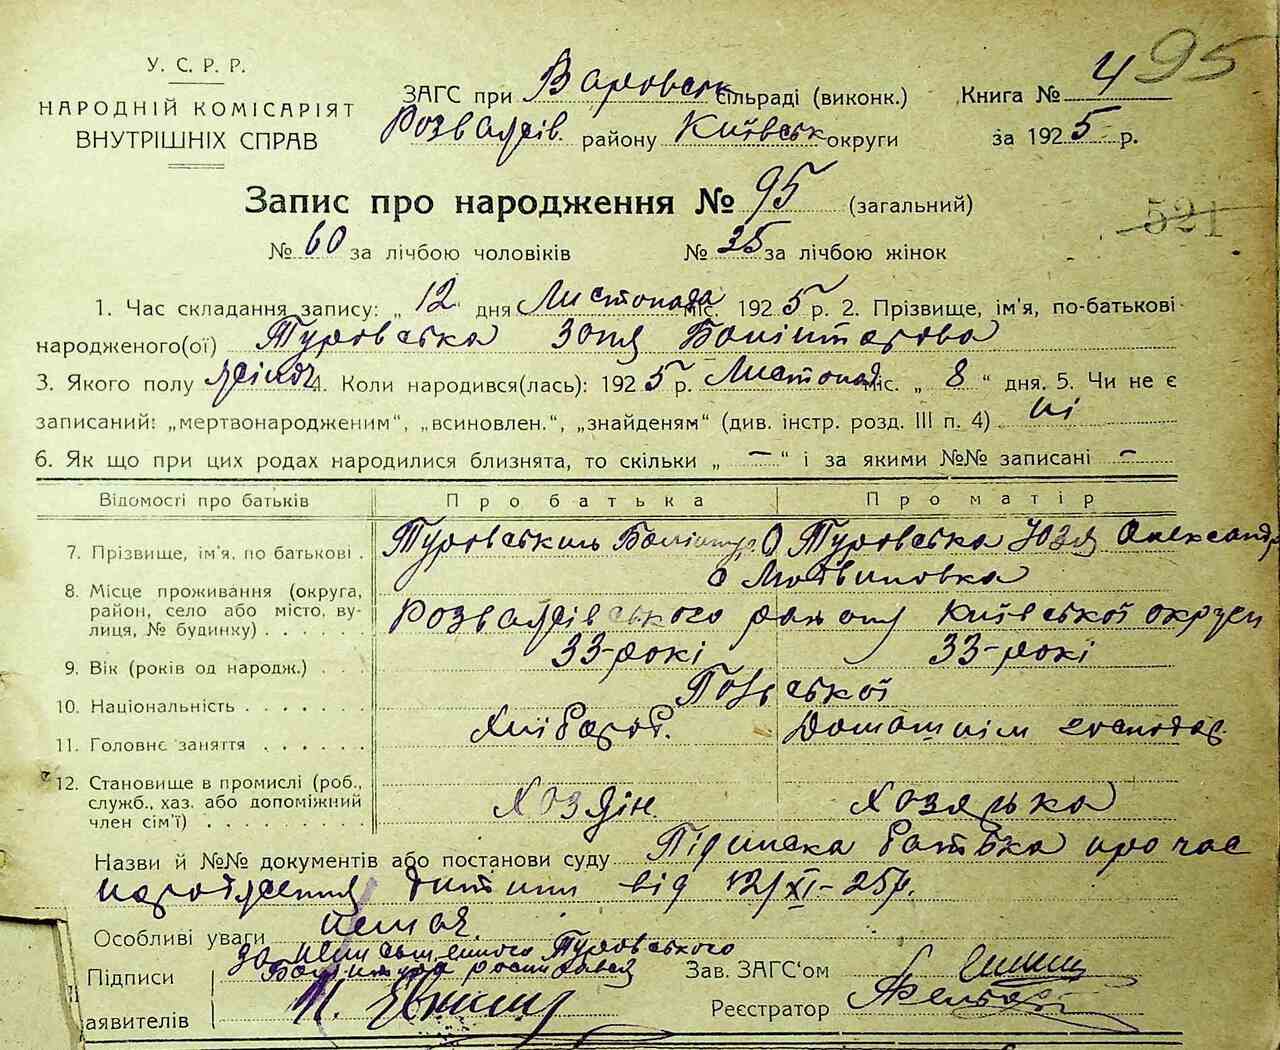 95
У. С. Р. Р.
НАРОДНІЙ КОМІСАРІЯТ
ВНУТРІШНІХ СПРАВ
ЗАГС при Варовськ сільраді (виконк.)
Книга № 4
Розважів. району Київськ округи
за 1925 р.
Запис про народження № 95 (загальний)
521
№ 60 за лічбою чоловіків № 35 за лічбою жінок
1. Час складання запису: „ 12 “ дня Листопада міс. 1925 р. 2. Прізвище, ім'я, по-батькові
народженого(ої) Туровська Зоня
3. Якого полу жіноч 4. Коли народився(лась): 1925 р. Листопад міс. „ 8 “ дня. 5. Чи не є
записаний: „мертвонародженим“, „всиновлен.“, „знайденям“ (див. інстр. розд. III п. 4) ні
6. Як що при цих родах народилися близнята, то скільки „ — “ і за якими №№ записані —
Відомості про батьків Про батька Про матір
7. Прізвище, ім'я, по батькові . Туровський Туровська Юзя Олександр
8. Місце проживання (округа, с Литвиновка
район, село або місто, ву-
лиця, № будинку) . . . . . . Розважівського району Київської округи
9. Вік (років од народж.) . . 33-рокі 33-рокі
10. Національність . . . . . . . Польської
11. Головнє заняття . . . . . . Хлібороб. Домашнім господар.
12. Становище в промислі (роб.,
служб., хаз. або допоміжний
член сім'ї) . . . . . . . . . Хозяін. Хозяйка
Назви й №№ документів або постанови суду Підписка батька про час
народження дитини від 12/XI-25р.
Особливі уваги немає.
за неписьменного Туровського
Підписи росписався
аявителів
Зав. ЗАГС'ом
Реєстратор